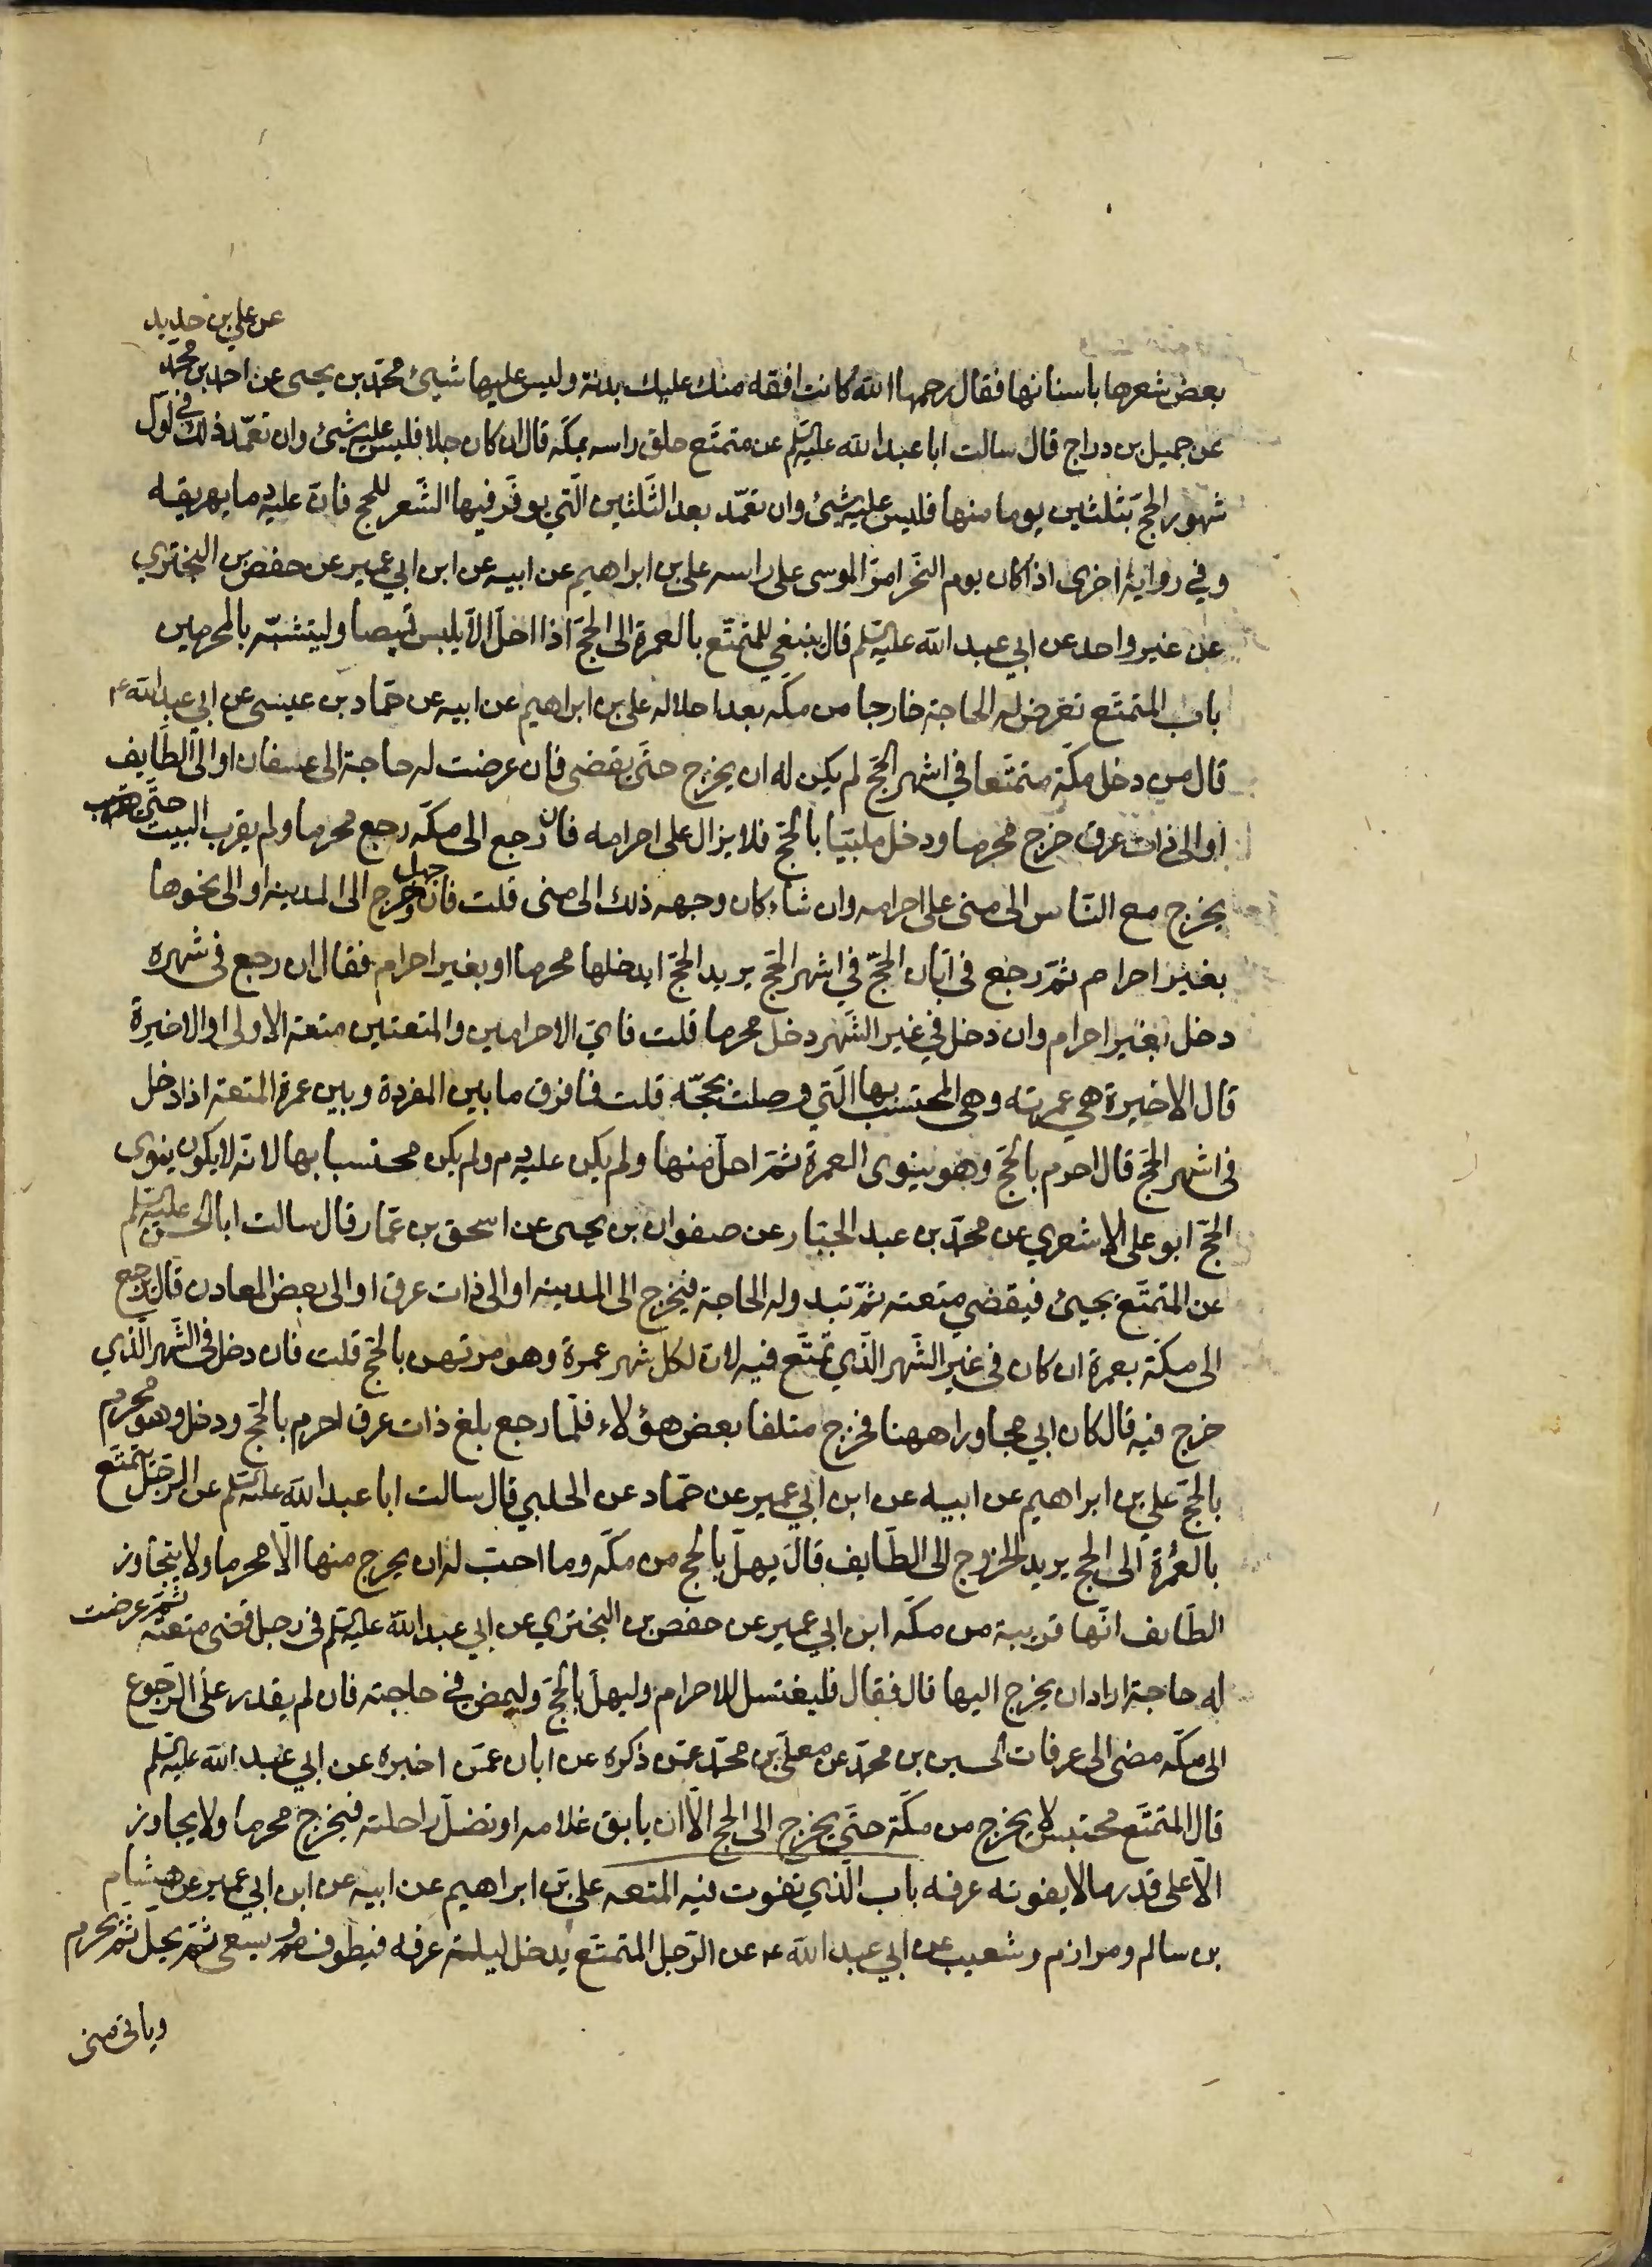 عن علي بن حديد
بعض شعرها باسنانها فقال رحمها الله كانت افقه منك عليك بدنة وليس عليها شيئ محمّد بن يحيى عن احمد بن محمّد
عن جميل بن دراج قال سالت ابا عبد الله عليه السّلم عن متمتّع حلق راسه بمكّه قال ان كان جاهلا فليس عليه شيئ وان تعمّد ذلك في اول
شهور الحجّ بثلثين يوما منها فليس عليه شيئ وان تعمّد بعد الثّلثين الّتي يوفّر فيها الشّعر للحج فانّ عليه دما يهريقه
وفي رواية اخرى اذا كان يوم النّحر امرّ الموسى على راسه علي بن ابراهيم عن ابيه عن ابن ابي عمير عن حفص بن البختري
عن غير واحد عن ابي عبد الله عليه السّلم قال ينبغي للمتمتّع بالعمرة الى الحجّ اذا احلّ الّا يلبس قميصا وليتشبّه بالمحرمين
باب المتمتع تعرض له الحاجة خارجا من مكّه بعد احلاله علي بن ابراهيم عن ابيه عن حمّاد بن عيسى عن ابي عبد الله ع
قال من دخل مكّة متمتّعا في اشهر الحجّ لم يكن له ان يخرج حتّى يقضى فان عرضت له حاجة الى عسفان او الى الطّايف
او الى ذات عرق خرج محرما ودخل ملبّيا بالحجّ فلا يزال على احرامه فان رجع الى مكّه رجع محرما ولم يقرب البيت حتّى
يخرج مع النّاس الى منى على احرامه وان شاء كان وجهه ذلك الى منى قلت فان جهل وخرج الى المدينه او الى نحوها
بغير احرام ثمّ رجع في ابّان الحجّ في اشهر الحجّ يريد الحجّ ايدخلها محرما او بغير احرام فقال ان رجع فى شهره
دخل بغير احرام وان دخل في غير الشّهر دخل محرما قلت فايّ الاحرامين والمتعتين متعة الاولى او الاخيرة
قال الاخيرة هي عمرته وهى المحتسب بها الّتي وصلت بحجّه قلت فما فرق ما بين المفردة وبين عمرة المتعة اذا دخل
فى اشهر الحجّ قال احرم بالحجّ وهو ينوى العمرة ثمّ احلّ منها ولم يكن عليه دم ولم يكن محتسبا بها لانّه لا يكون ينوى
الحجّ ابو على الاشعري عن محمّد بن عبد الجبّار عن صفوان بن يحيى عن اسحق بن عمّار قال سالت ابا الحسن عليه السّلم
عن المتمتّع يجيئ فيقضي متعته ثمّ تبدو له الحاجة فيخرج الى المدينه او الى ذات عرق او الى بعض المعادن قال يرجع
الى مكّة بعمرة ان كان فى غير الشّهر الّذي تمتّع فيه لانّ لكل شهر عمرة وهو مرتهن بالحجّ قلت فان دخل فى الشّهر الّذي
خرج فيه قال كان ابي مجاورا ههنا فخرج متلقا بعض هؤلاء فلّما رجع بلغ ذات عرق احرم بالحجّ ودخل وهو محرم
بالحجّ علي بن ابراهيم عن ابيه عن ابن ابي عمير عن حمّاد عن الحلبي قال سالت ابا عبد الله عليه السّلم عن الرّجل يتمتّع
بالعُمرة الى الحج يريد الخروج الى الطّايف قال يهلّ بالحج من مكّه وما احبّ له ان يخرج منها الّا محرما ولا يتجاوز
الطّايف انّها قريبة من مكّه ابن ابي عمير عن حفص بن البختري عن ابي عبد الله عليه السّلم فى رجل قضى متعته ثمّ عرضت
له حاجة اراد ان يخرج اليها قال فقال فليغتسل للاحرام وليهلّ بالحجّ وليمض فى حاجته فان لم يقدر على الرّجوع
الى مكّه مضى الى عرفات الحسين بن محمّد عن معلّى بن محمّد عمّن ذكره عن ابان عمّن اخبره عن ابي عبد الله عليه السّلم
قال المتمتّع محتبس لا يخرج من مكّة حتّى يخرج الى الحج الّا ان يابق غلامه او تضلّ راحلته فيخرج محرما ولا يجاوز
الّا على قدر ما لا يفوته عرفه باب الّذي تفوت فيه المتعه علي بن ابراهيم عن ابيه عن ابن ابي عمير عن هشام
بن سالم ومرازم وشعيب عن ابي عبد الله ع عن الرّجل المتمتّع يدخل ليلة عرفه فيطوف ويسعى ثمّ يحلّ ثمّ يحرم
وياتى منى